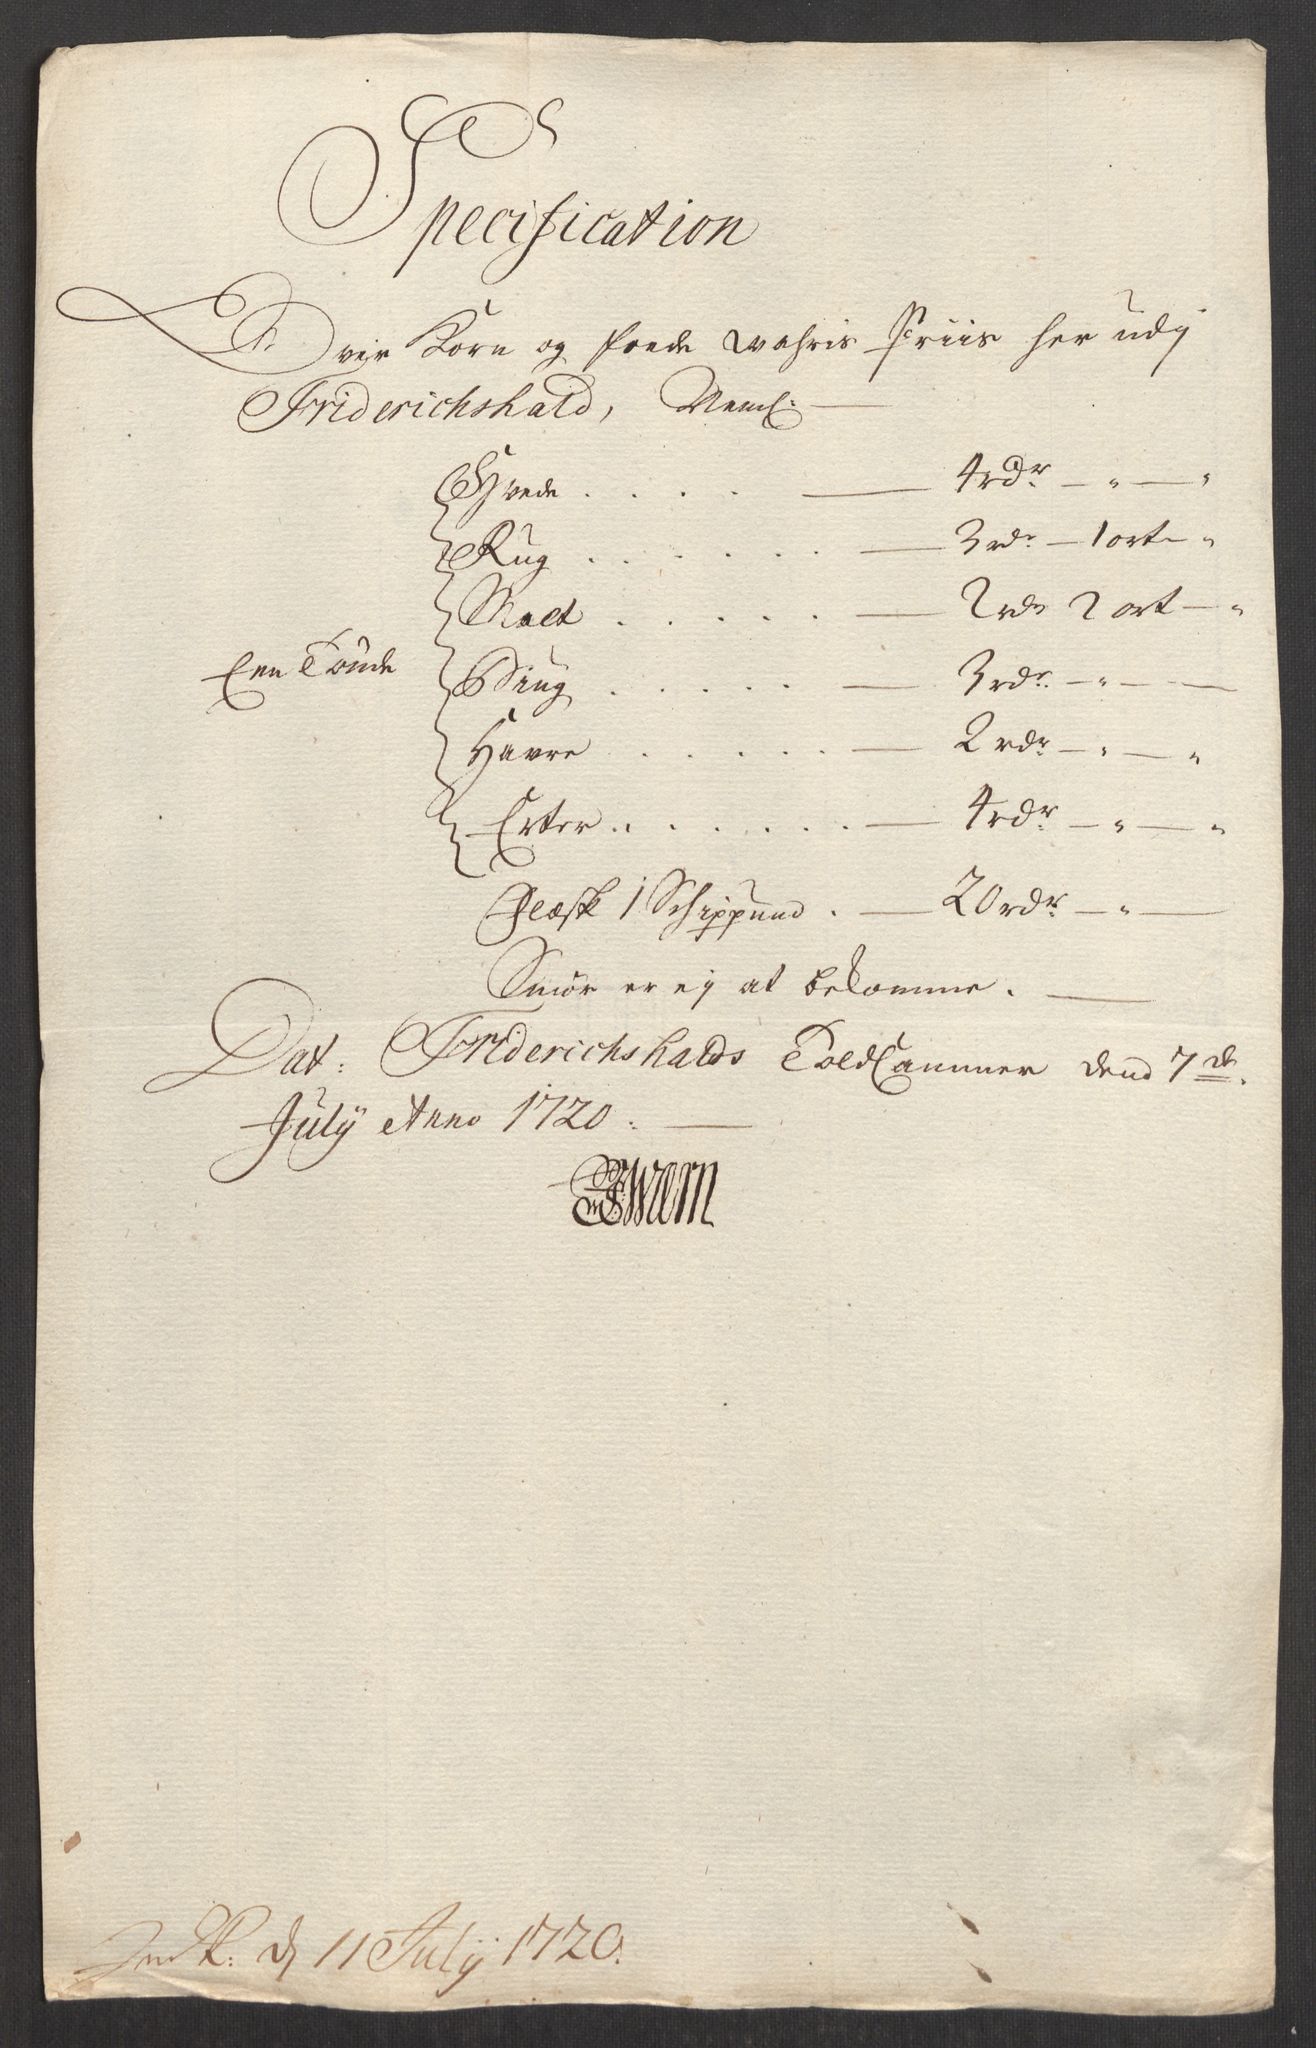 Specification
Over Korn og foede wahris Priis her udj
Friderichshald, Neml:
Hvede . . . . 4 rdr - " - "
Rug . . . . . . 3 rdr - 1 ort - "
Malt . . . . . 2 rdr 2 ort - "
Een Tønde Biug . . . . . 3 rdr - " -
Havre . . . . . 2 rdr - " - "
Erter . . . . . . 4 rdr - " - "
Flæsk 1 Schippund . 20 rdr - " -
Smør er ej at bekomme.
Dat: Friderichshalds Toldkammer dend 7de
July Anno 1720.
Wærn
Indk: d 11 July 1720.